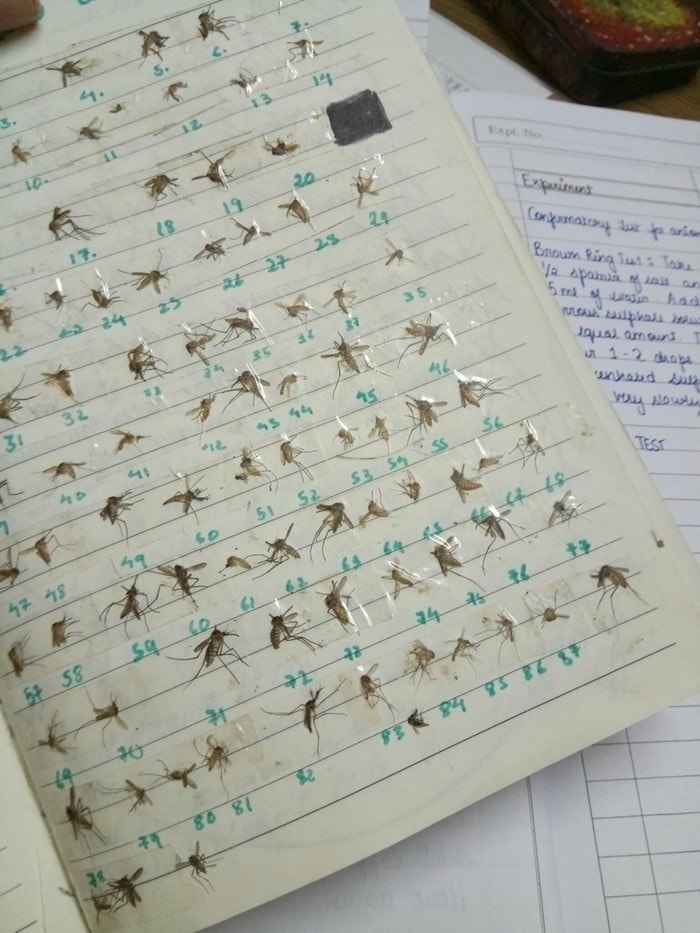 5. 6. 7.
3. 4.
12 13 14
10. 11
18 19 20
17.
26 27 28 29
22 23 24 25
34 35 36 37 35
31 32 33
43 44 45 46
40 41 42
51 52 53 54 55 56
47 48 49 50
62 63 64 65 66 67 68
57 58 59 60 61
72 73 74 75 76 77
69 70 71
82 83 84 85 86 87
79 80 81
78
Expt. No.
Experiment
Confirmatory Test for anion
Brown Ring Test : Take
1/2 spatula of salt an
5 ml of water. Add
rrous sulphate solu
equal amount. T
r 1-2 drops
very slowly
TEST